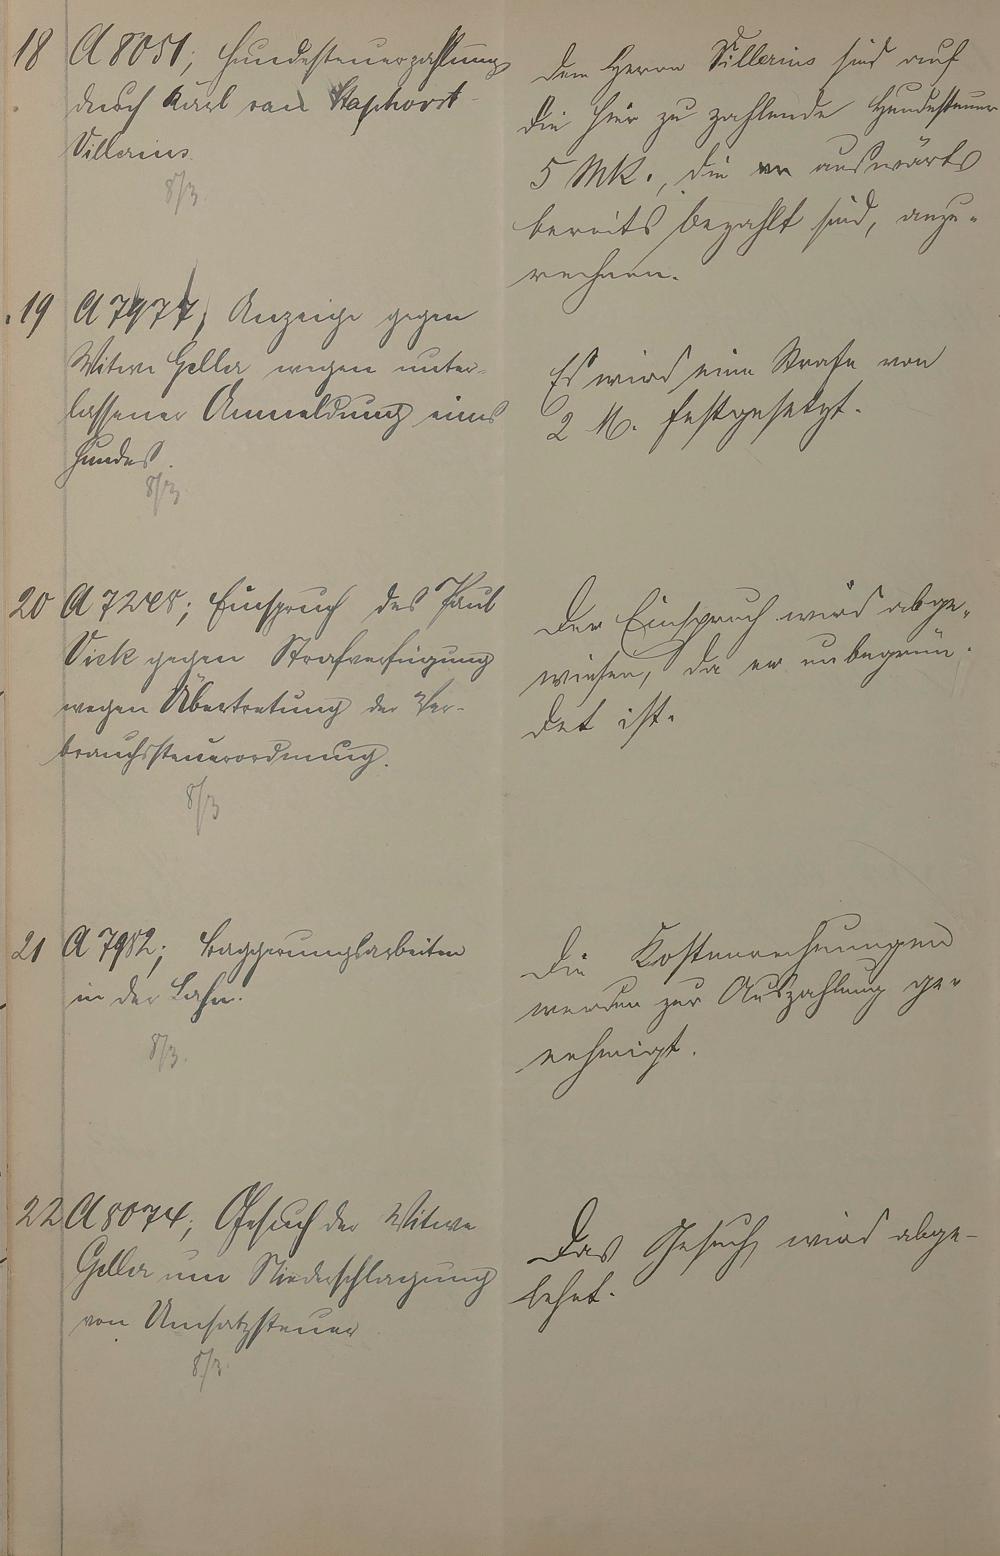 18 A 8051; Hundesteuerzahlung
durch Karl van Staphorst-
Villerius
8/3.
Dem Herrn Villerius sind auf
die hier zu zahlende Hundesteuer
5 Mk., die auswärts
bereits bezahlt sind, anzu-
rechnen.
19 A 7977, Anzeige gegen
Witwe Geller wegen unter-
lassener Anmeldung eines
Hundes.
8/3.
Es wird eine Strafe von
2 M. festgesetzt.
20 A 7248; Einspruch des Paul
Vick gegen Strafverfügung
wegen Übertretung der Ver-
brauchssteuerordnung.
8/3
Der Einspruch wird abge-
wiesen, da er unbegrün-
det ist.
21 A 7982; Baggerungsarbeiten
in der Lahn.
8/3.
Die Kostenrechnungen
werden zur Auszahlung ge-
nehmigt.
22 A 8074; Gesuch der Witwe
Geller um Niederschlagung
von Umsatzsteuer
8/3.
Das Gesuch wird abge-
lehnt.